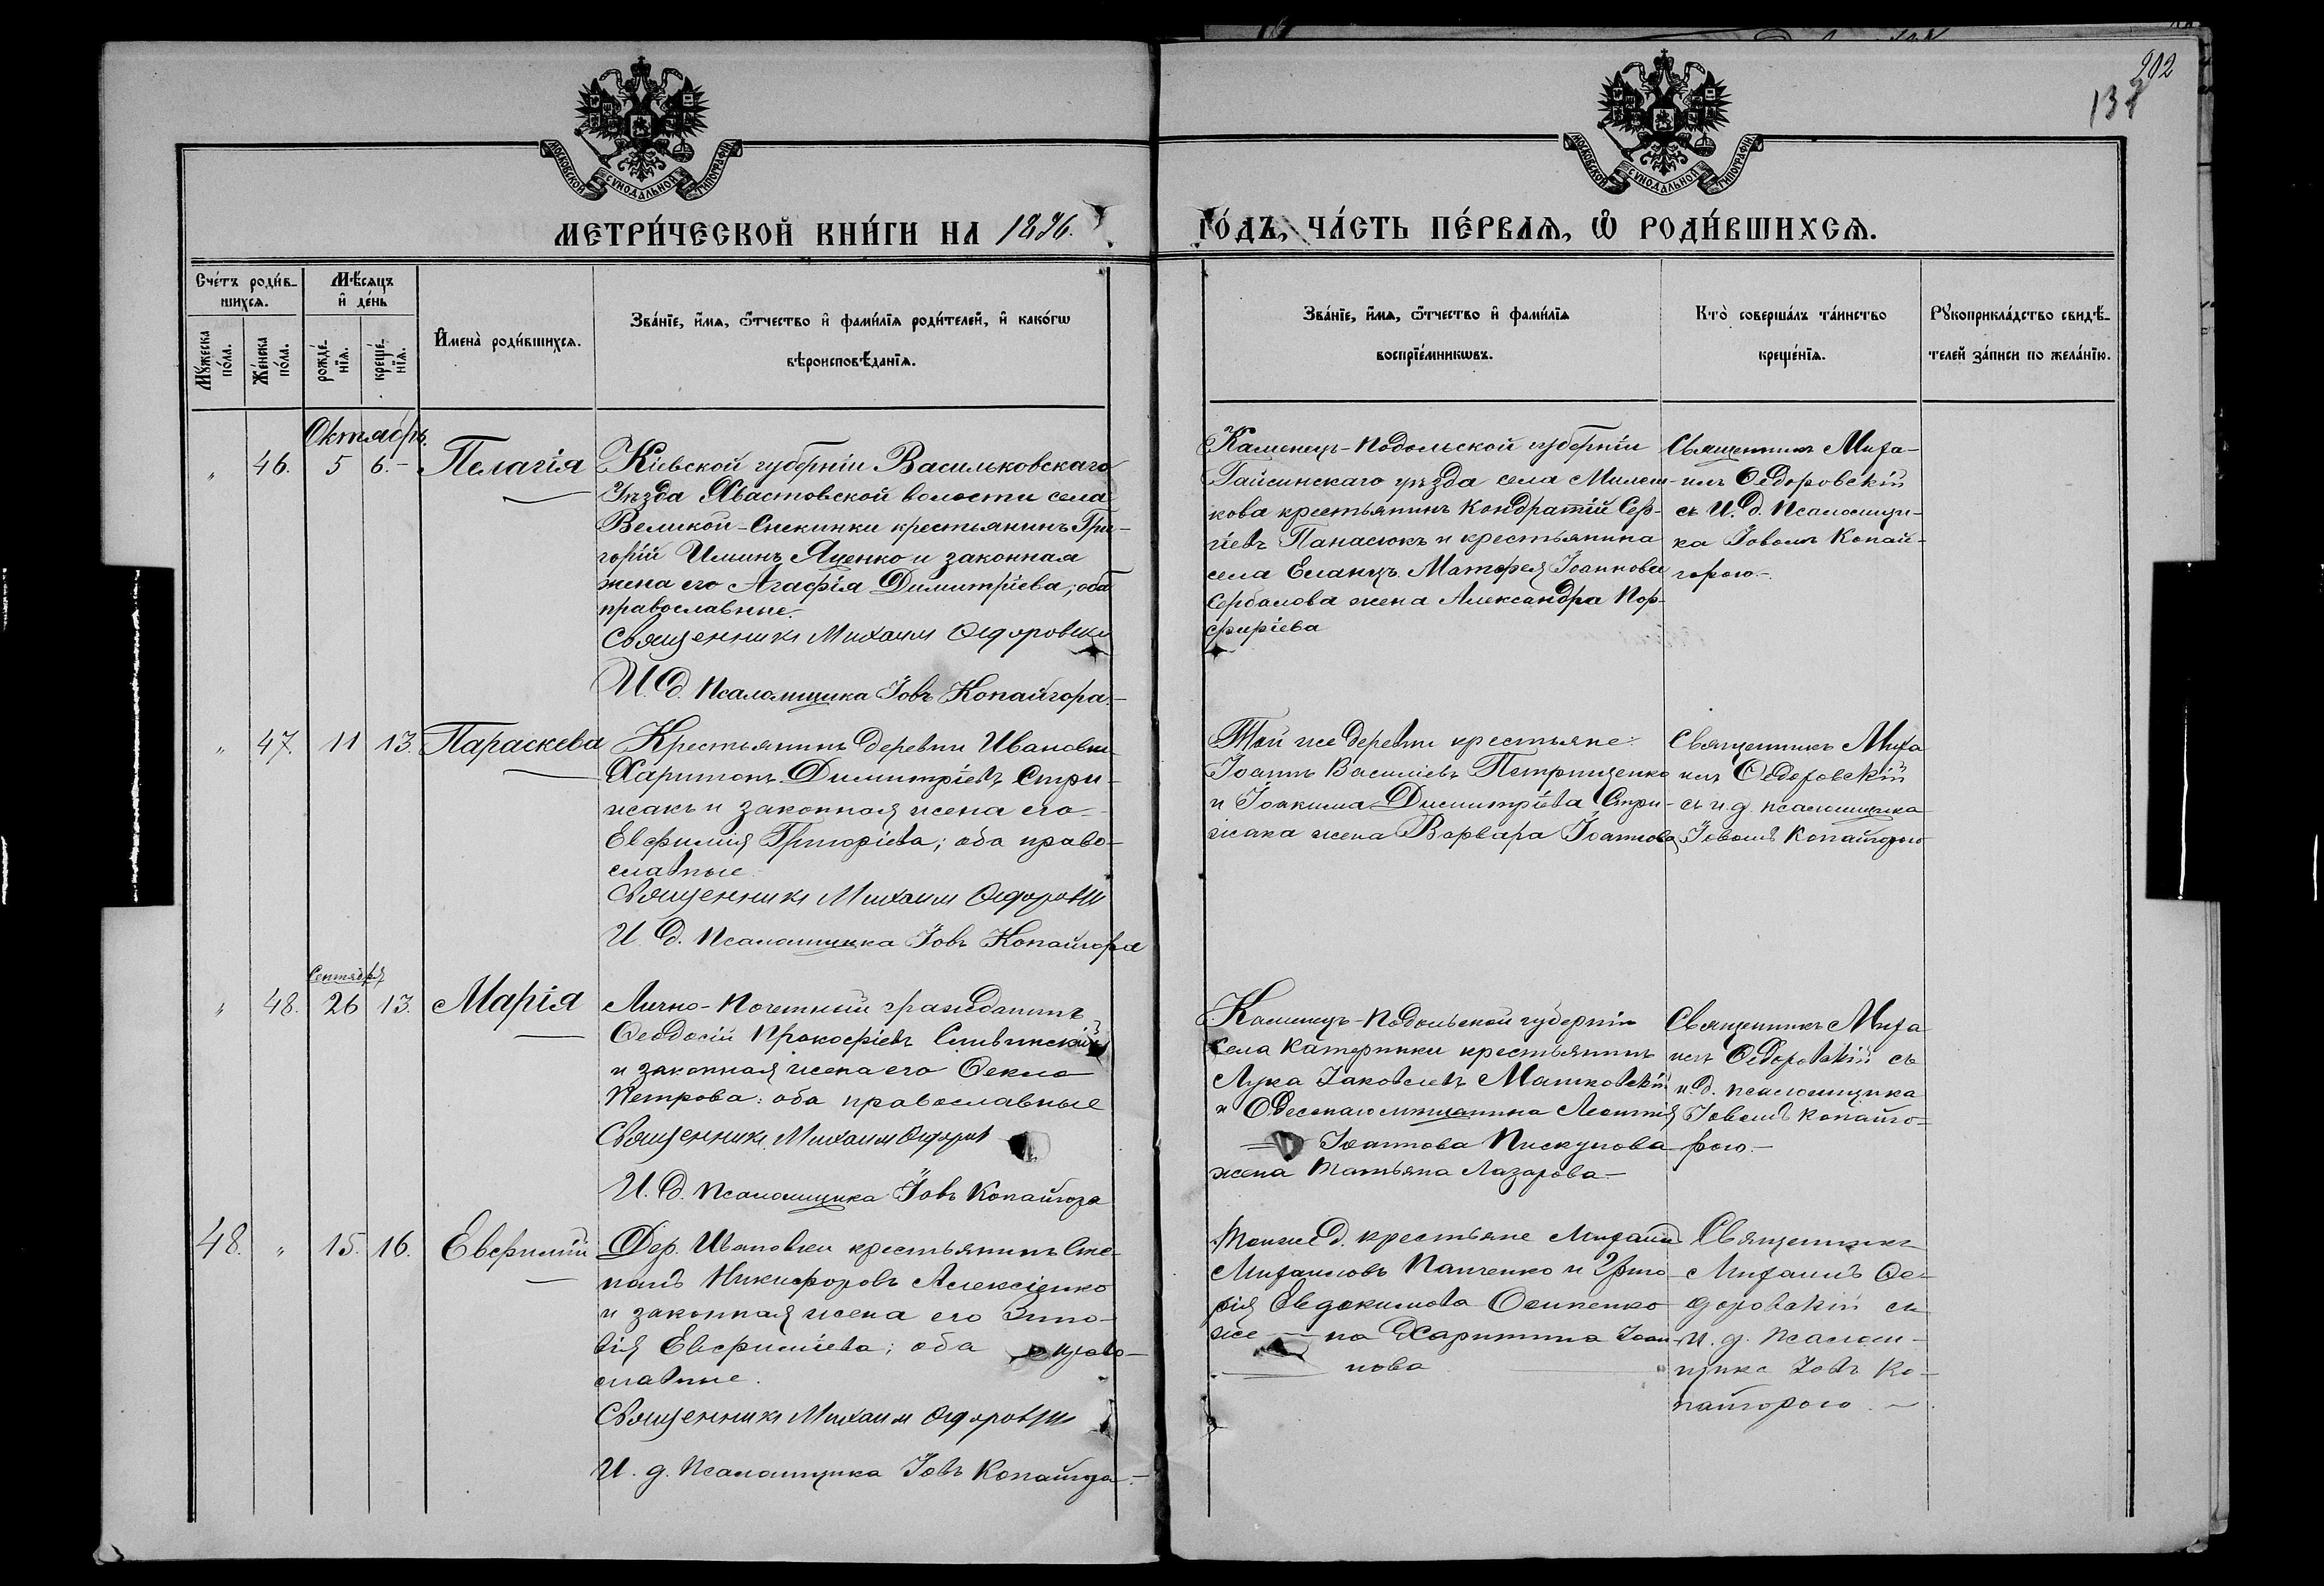 902
137
МОСКОВСКОЙ СУНОДАЛЬНОЙ ТИПОГРАФІИ
МОСКОВСКОЙ СУНОДАЛЬНОЙ ТИПОГРАФІИ
МЕТРИ́ЧЕСКОЙ КНИ́ГИ НА 1896.
ГО́ДЪ, ЧА́СТЬ ПЕ́РВАѦ, Ѡ РОДИ́ВШИХСѦ.
Сче́тъ роди́в-
шихсѧ.
Мѣ́сѧцъ
и҆ де́нь
Мꙋ́жеска по́ла.
Же́нска по́ла.
рожде́-
нїѧ.
креще́-
нїѧ.
И҆мена̀ роди́вшихсѧ.
Зва́нїе, и҆́мѧ, ѻ҆́тчество и҆ фами́лїѧ роди́телей, и҆ како́гѡ
вѣроисповѣ́данїѧ.
Зва́нїе, и҆́мѧ, ѻ҆́тчество и҆ фами́лїѧ
воспрїе́мникѡвъ.
Кто̀ соверша́лъ та́инство
креще́нїѧ.
Рꙋкоприкла́дство свидѣ́-
телей за́писи по жела́нїю.
Октябрь.
" 46. 5 6.- Пелагія
Кіевской губерніи Васильковскаго
Уѣзда Хвастовской волости села
Великой-Снежинки крестьянинъ Гри-
горій Илiинъ Яценко и законная
жена его Агафія Димитріева; оба
православные.
Священникъ Михаилъ Ѳедоровскі
И. Д. Псаломщика Іовъ Копайгора.-
Каменецъ-Подольской губерніи
Гайсинскаго уѣзда села
кова крестьянинъ Кондратій Сер-
гіевъ Панасюкъ и крестьянина
села Еланцъ Матфея Іоаннова
Сербалова жена Александра Пор-
фиріева
Священникъ Миха-
илъ Ѳедоровскій
съ И. Д. Псаломщи-
ка Іовомъ Копай-
горою.-
" 47. 11 13. Параскева
Крестьянинъ деревни Ивановки
Харитонъ Димитріевъ Стри-
жакъ и законная жена его
Евфимія Григоріева; оба право-
славные.
Священникъ Михаилъ Ѳедоровскі
И. Д. Псаломщика Іовъ Копайгора
Той же деревни крестьяне:
Іоаннъ Василіевъ Петрищенко
и Іоакима Димитріева Стри-
жака жена Варвара Іоаннова
Священникъ Миха
илъ Ѳедоровскій
съ и. д. псаломщика
Іовомъ Копайгорою
Сентября
" 48. 26 13. Марія
Лично-Почетный гражданинъ
Ѳеодосій Прокофіевъ Сливинскій
и законная жена его Ѳекла
Петрова: оба православные
Священникъ Михаилъ Ѳедоров
И. Д. Псаломщика Іовъ Копайгора
Каменецъ-Подольской губерніи
села Катеринки крестьянинъ
Лука Іаковлевъ Машковскій
и Одесскаго мѣщанина Леонтія
Іоаннова Пискунова
жена Татьяна Лазарова-
Священникъ Миха
илъ Ѳедоровскій съ
и. д. псаломщика
Іовомъ Копайго-
рою.-
48. " 15. 16. Евфимій
Дер. Ивановки крестьянинъ Сте-
панъ Никифоровъ Алексіенко
и законная жена его Зино-
вія Евфиміева; оба право-
славные.
Священникъ Михаилъ Ѳедоровскі
И. д. Псаломщика Іовъ Копайгора.-
Той же д. крестьяне Михаилъ
Михаиловъ Панченко и Григо-
рія Евдокимова Осипенко
же- на Харитина Іоан-
нова
Священникъ
Михаилъ Ѳе-
доровскій съ
И. д. Псалом-
щика Іовъ Ко-
пайгорою.-